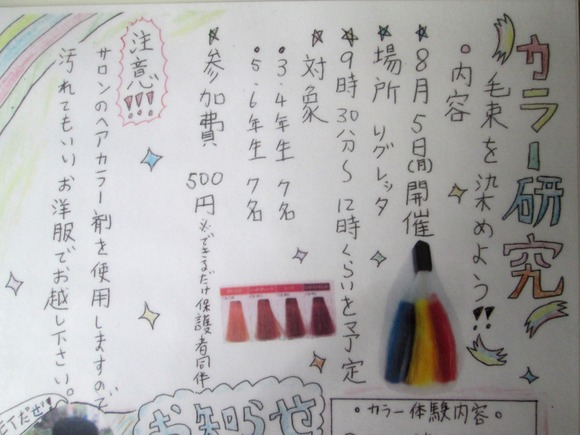 カラー研究
毛束を染めよう!!
・内容
★8月5日(月)開催
★場所 リグレッタ
★9時30分〜12時くらいを予定
★対象
・3.4年生 7名
・5.6年生 7名
★参加費 500円 ※できるだけ保護者同伴
注意!!!
サロンのヘアカラー剤を使用しますので
汚れてもいいお洋服でお越し下さい。
お知らせ
・カラー体験内容・